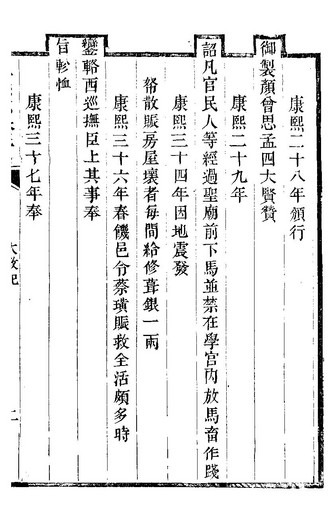 康熙二十八年頒行
御製顏曾思孟四大賢贊
康熙二十九年
詔凡官民人等經過聖廟前下馬並禁在學宮內放馬畜作踐
康熙三十四年因地震發
帑散賑房屋壞者每間給修葺銀一兩
康熙三十六年春饑邑令蔡璜賑救全活頗多時
鑾輅西巡撫臣上其事奉
旨軫恤
康熙三十七年奉
大政記
二